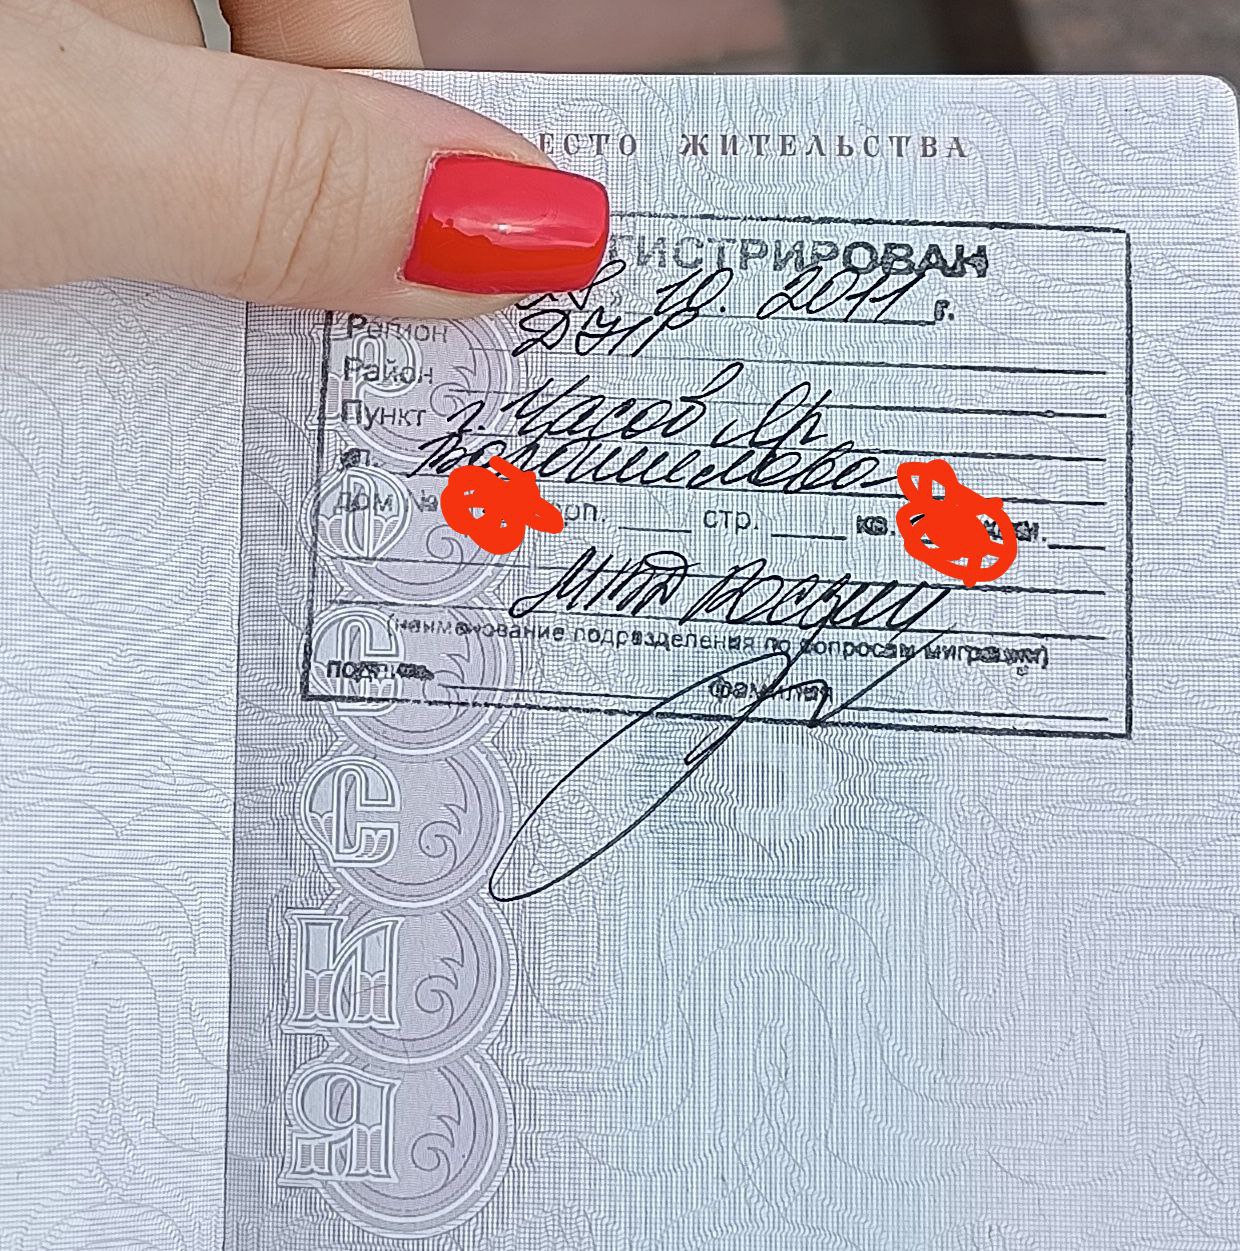 ЕСТО ЖИТЕЛЬСТВА
ГИСТРИРОВАН
28 » 10. 2011 г.
Регион ДНР
Район
Пункт г. Часов Яр
ул. Ворошилова
дом № орп. стр. кв.
МТД России
(наименование подразделения по вопросам миграции)
подпись фамилия
РОССИЯ